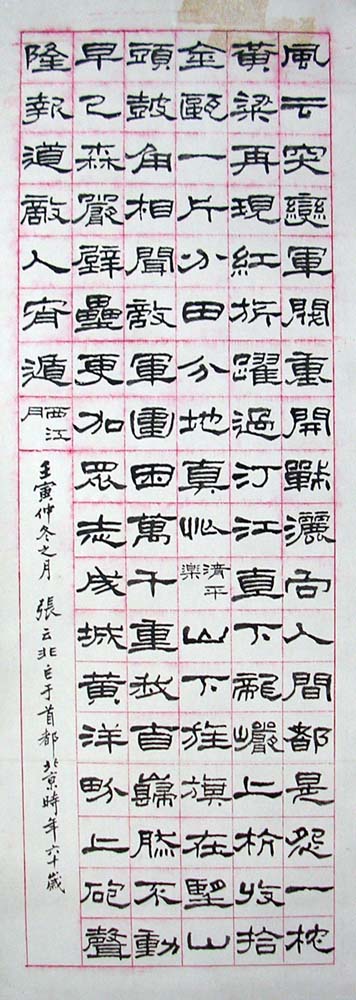 風云突變軍閥重開戰灑向人間都是怨一枕
黃粱再現紅旂躍過汀江直下龍巖上杭收拾
金甌一片分田分地真忙清平樂山下旌旗在望山
頭鼓角相聞敵軍圍困萬千重我自巋然不動
早已森嚴壁壘更加眾志成城黃洋畍上砲聲
隆報道敵人宵遁西江月
壬寅仲冬之月 張云于首都北京時年六十歲